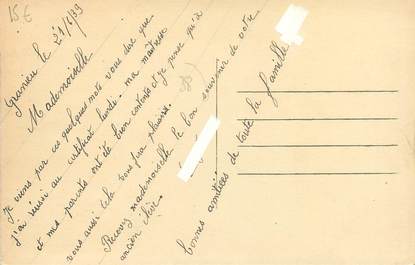 15€
Granieu le 21/6/39
Mademoiselle
Je viens par ces quelques mots vous dire que
j'ai réussi au certificat lundi. ma maîtresse
et mes parents ont été bien contents et je pense qu'à
vous aussi cela vous fera plaisir.
Recevez mademoiselle le bon souvenir de votre
ancien élève.
bonnes amitiées de toute la famille
38)